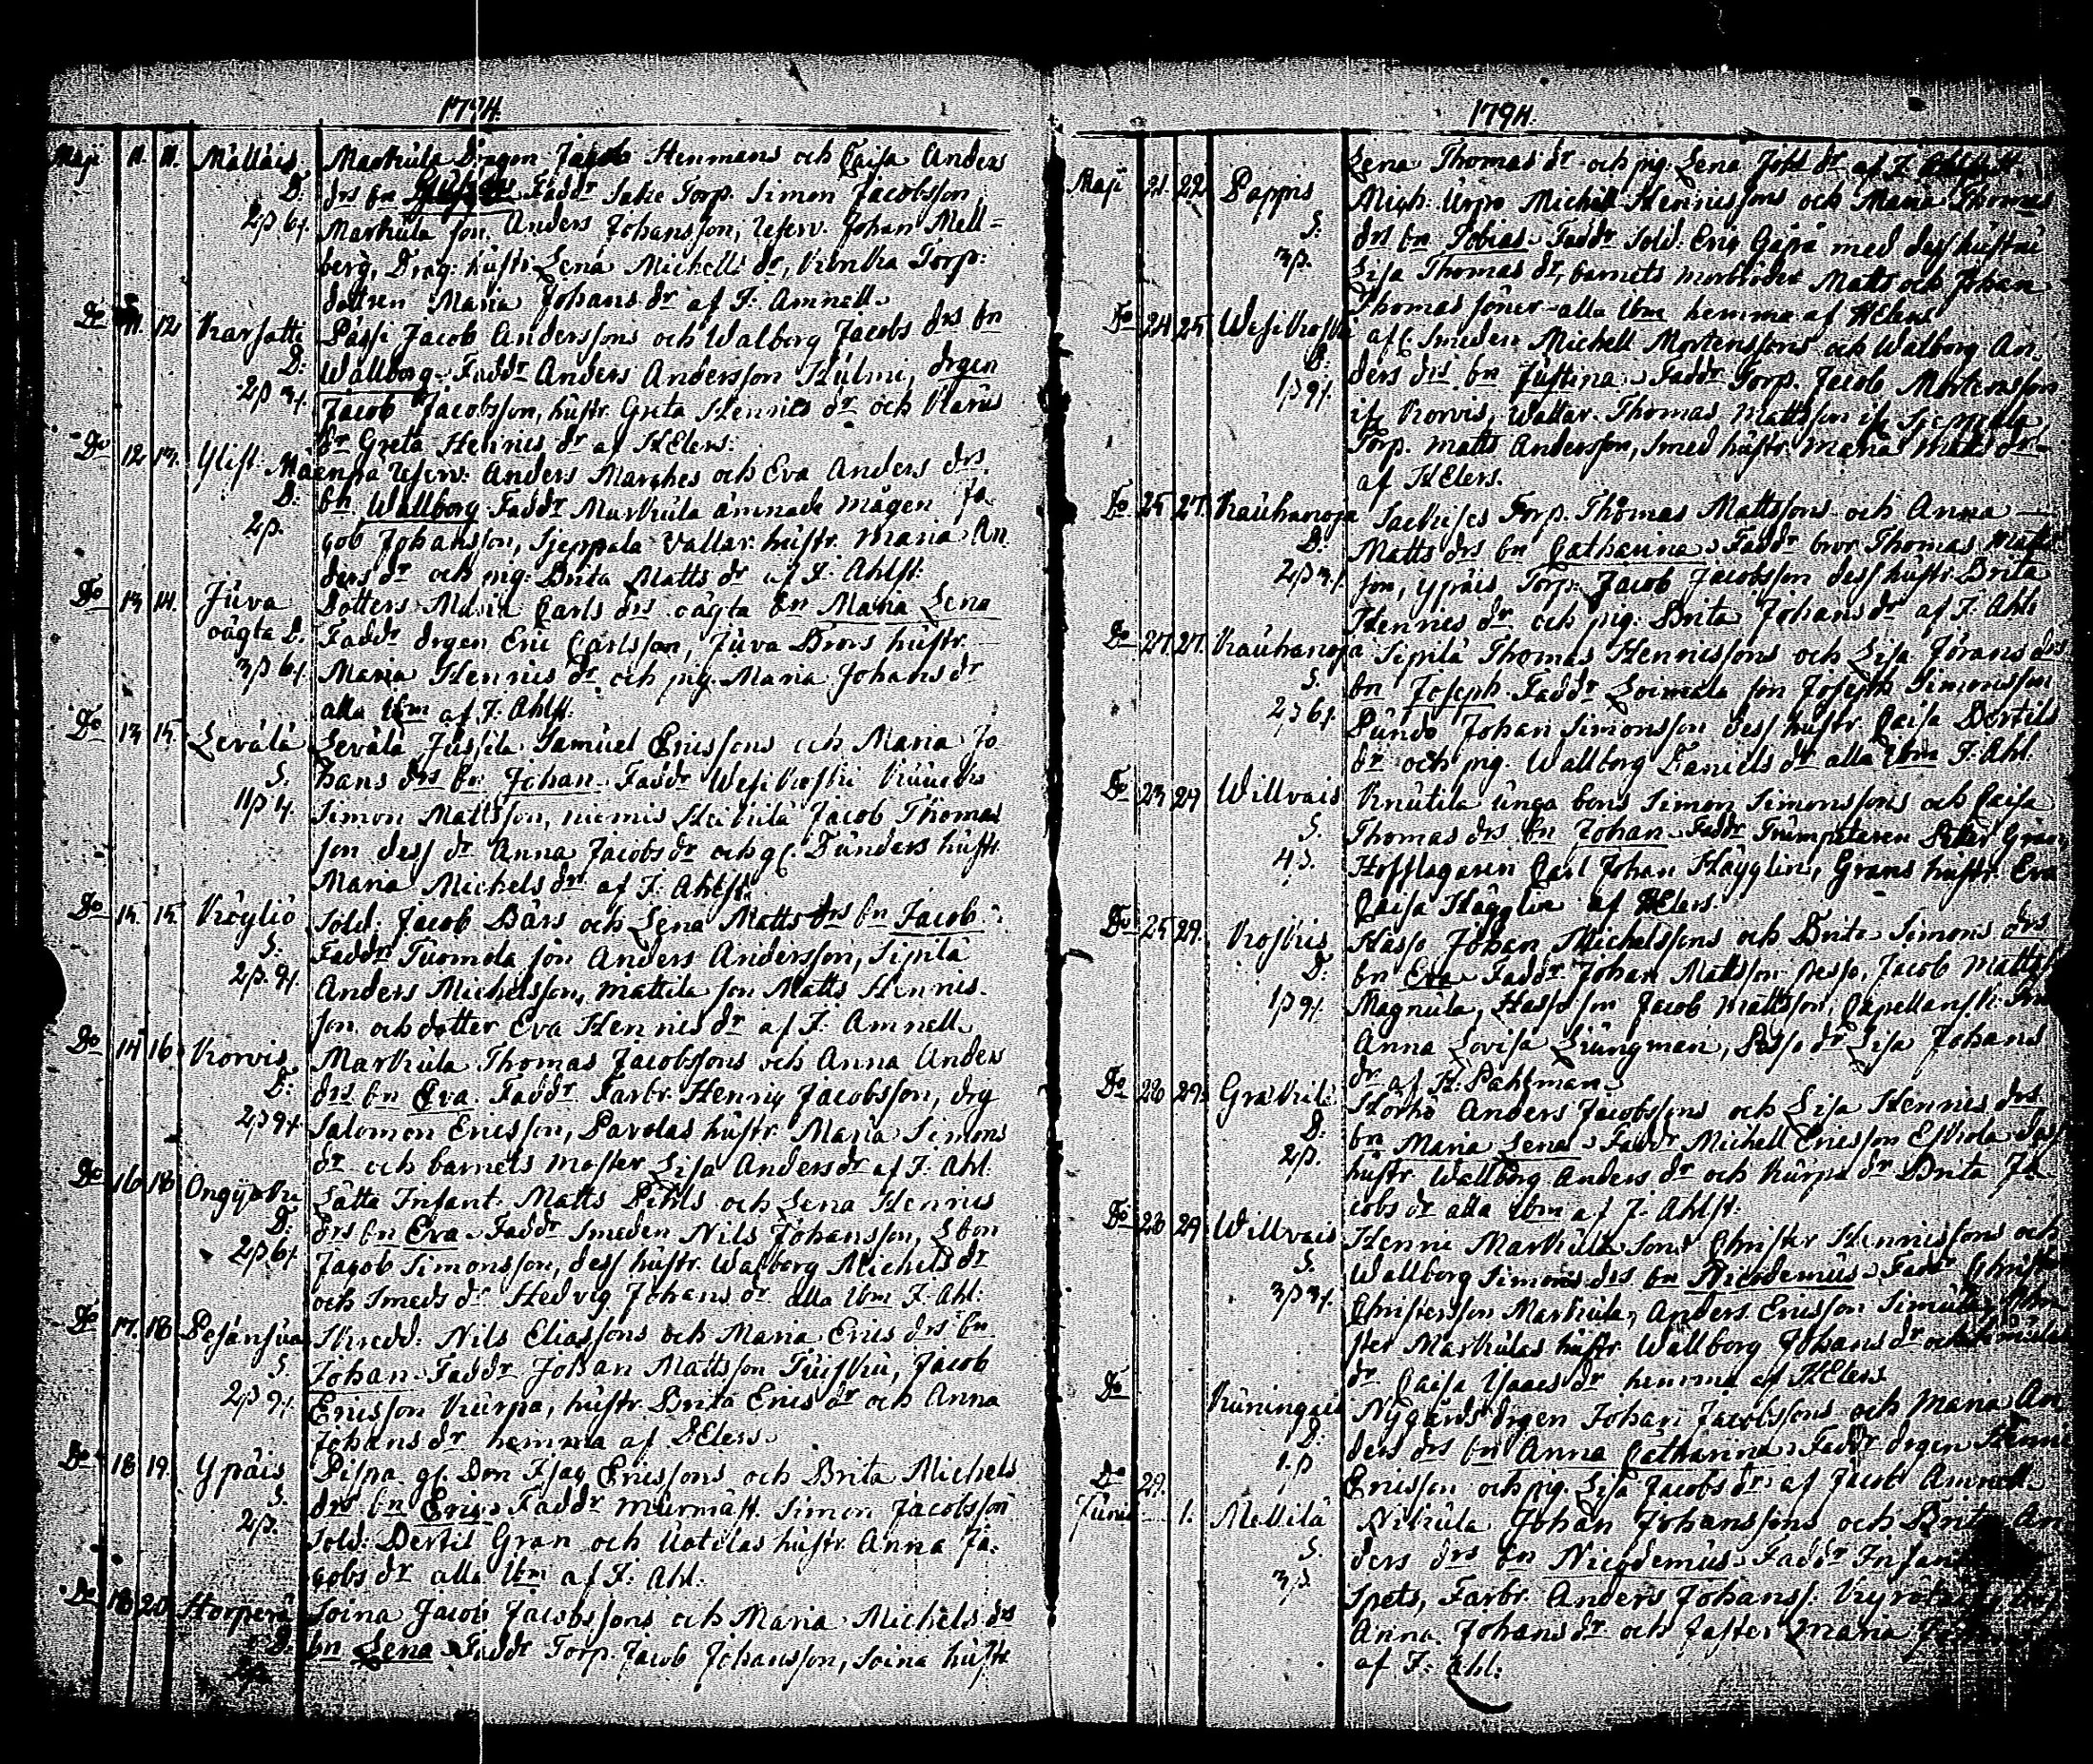 1794.
Maji 11. 11. Mällais Markula Dragon Jacob Henmans och Caisa Anders
D. drs bn Faddr Sake Torp. Simon Jacobsson
2ß 6 Markula son Anders Johansson, Reserv. Johan Mell=
berg, Drag: hustr Lena Michells dr, Torp:
dottren Maria Johans dr af J: Amnell
Do 11. 12 Karsatti Pässi Jacob Anderssons och Walborg Jacobs drs bn
D. Wallborg Faddr Anders Andersson Hulmi, drgen
2ß Jacob Jacobsson, hustr Greta Henrics dr och
dr Greta Henrics dr af HElers.
Do 12 13. Ylist. Mäenpä Reserv: Anders Marckes och Eva Anders drs
D. bn Wallborg Faddr Markula ämnade mågen Ja
2ß. cob Johansson, Sjeppala Vallar. hustr. Maria An
ders dr och pig: Brita Matts dr af J: Ahlst:
Do 13 14. Juva Dotters Maria Carls drs oägta bn Maria Lena
oägta D. Faddr drgen Eric Carlsson, Juva Brors hustr
3ß 6 Maria Henrics dr och pig Maria Johans dr
alla Ibm af J: Ahlst:
Do 13 15 Levälä Levälä Jussila Samuel Ericssons och Maria Jo
S. hans drs bn Johan Faddr Wesikoski
11ß 4. Simon Mattsson, niemis Heikilä Jacob Thomas
son dess dr Anna Jacobs dr och gl. Tunders hustr
Maria Michels dr af J: Ahlst
Do 15. 15. Köyliö Sold: Jacob Bärs och Lena Matts drs bn Jacob
S. Faddr Tuomola son Anders Andersson, Sipilä
2ß. 9 Anders Michelsson, Mattila son Matts Henrics.
son och dotter Eva Henrics dr af J: Amnell
Do 14 16. Korvis Markula Thomas Jacobssons och Anna Anders
D: drs bn Eva Faddr Farbr. Henric Jacobsson, drg
2ß 9 Salomon Ericsson, Pavolas hustr Maria Simons
dr och barnets moster Lisa Anders dr af J: Ahl.
Do 16 18 Ongyoki Lätta Infant: Matts Pihls och Lena Henrics
D. drs bn Eva Faddr Smeden Nils Johansson,
2ß 6 Jacob Simonsson, dess hustr. Walborg Michels dr
och Smeds dr Hedvig Johans dr alla Ibm J: Ahl:
Do 17. 18 Pesänsuu Skredd: Nils Eliassons och Maria Erics drs bn
S. Johan Faddr Johan Mattsson Tuiskú, Jacob
2ß 9 Ericsson Kurpa, hustr Brita Erics dr och Anna
Johans dr hemma af HElers.
Do 18 19. Ypäis Pispa gl. Bon Isac Ericssons och Brita Michels
S. drs bn Eric Faddr Murmäst. Simon Jacobsson
2ß. Sold: Bertil Gran och Uotilas hustr Anna Ja.
cobs dr alla Ibm af J: Ahl.
Do 18 20 Horperä Soina Jacob Jacobssons och Maria Michels drs
D. bn Lena Faddr Torp. Jacob Johansson, Soina hustr
2ß.
1794.
Lena Thomas dr och pig. Lena Joh: dr af J. Ahlst.
Maji 21. 22 Pappis Mich: Urpo Michel Henricssons och Maria Thomas
S. drs bn Tobias Faddr Sold. Eric Gåpå med dess hustru
3ß. Lisa Thomas dr, barnets morbröder Matts och Johan
Thomas söner alla Ibm hemma af HElers
Do 24 25 Wesikoski afl. Smeden Michell Mortenssons och Walborg An.
D. ders drs bn Justina Faddr Torp. Jacob Mortensson
1ß 9 if. Korvis, Wallar. Thomas Mattsson if.
Torp. Matts Andersson, Smed hustr. Maria Matts dr
af HElers.
Do 25 27. Kauhanoja Torp. Thomas Mattssons och Anna
D. Matts drs bn Catharina Faddr bror Thomas Matts
2ß son, Ypäis Torp. Jacob Jacobsson dess hustr Brita
Henrics dr och pig. Brita Johans dr af J. Ahl
Do 27. 27. Kauhanoja Sipilä Thomas Henricssons och Lisa Jörans drs
S. bn Joseph Faddr Soimala son Joseph Simonsson
2ß 6 Pundo Johan Simonsson dess hustr. Caisa Bertils
dr och pig. Wallborg Daniels dr alla Ibm J: Ahl.
Do 23 29 Willvais Knutila unga bons Simon Simonssons och Caisa
S. Thomas drs bn Johan Faddr Trumpetaren Peter Gran
4ß. Hofslagaren Carl Johan Hägglin, Grans hustr. Eva
Caisa Hägglin af HElers.
Do 25 29. Koskis Hasso Johan Michelssons och Brita Simons drs
D. bn Eva Faddr Johan Mattsson Pesso, Jacob Matts
1ß 9 Magnula, Hasso son Jacob Mattsson, Capellansk:
Anna Lovisa Liungman, dr Lisa Johans
dr af H: Pahlman
Do 26 29 Gräkilä Horho Anders Jacobssons och Lisa Henrics drs
D: bn Maria Lena Faddr Michell Ericsson Eskola dess
2ß. hustr Wallborg Anders dr och Kurpa dr Brita Ja
cobs dr alla Ibm af J: Ahlst:
Do 28 29 Willvais Henne Markula Sons Christer Henricssons och
S. Wallborg Simons drs bn Nicodemus Faddr Christ
3ß Christersson Markula, Anders Ericsson Simula,
ster Markulas hustr Wallborg Johans dr och
dr Caisa Isaacs dr hemma af HElers
Do Kuningais Nygårds drgen Johan Jacobssons och Maria An
D: ders drs bn Anna Catharina Faddr drgen
1.ß Ericsson och pig. Lisa Jacobs dr af Jacob Amnell
Do 29.
Junii 1. Mellilä Nikula Johan Johanssons och Brita An
S. ders drs bn Nicodemus Faddr
3ß. Spets, Farbr. Anders Johanss.
Anna Johans dr och faster Maria
af J: Ahl: